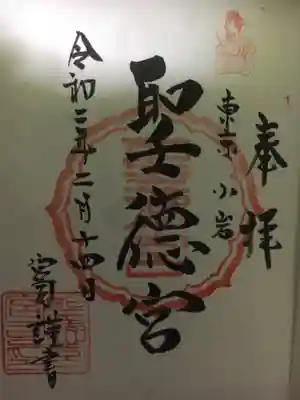 奉拝
東京 小岩
聖徳宮
令和三年十二月十四日
宮司謹書